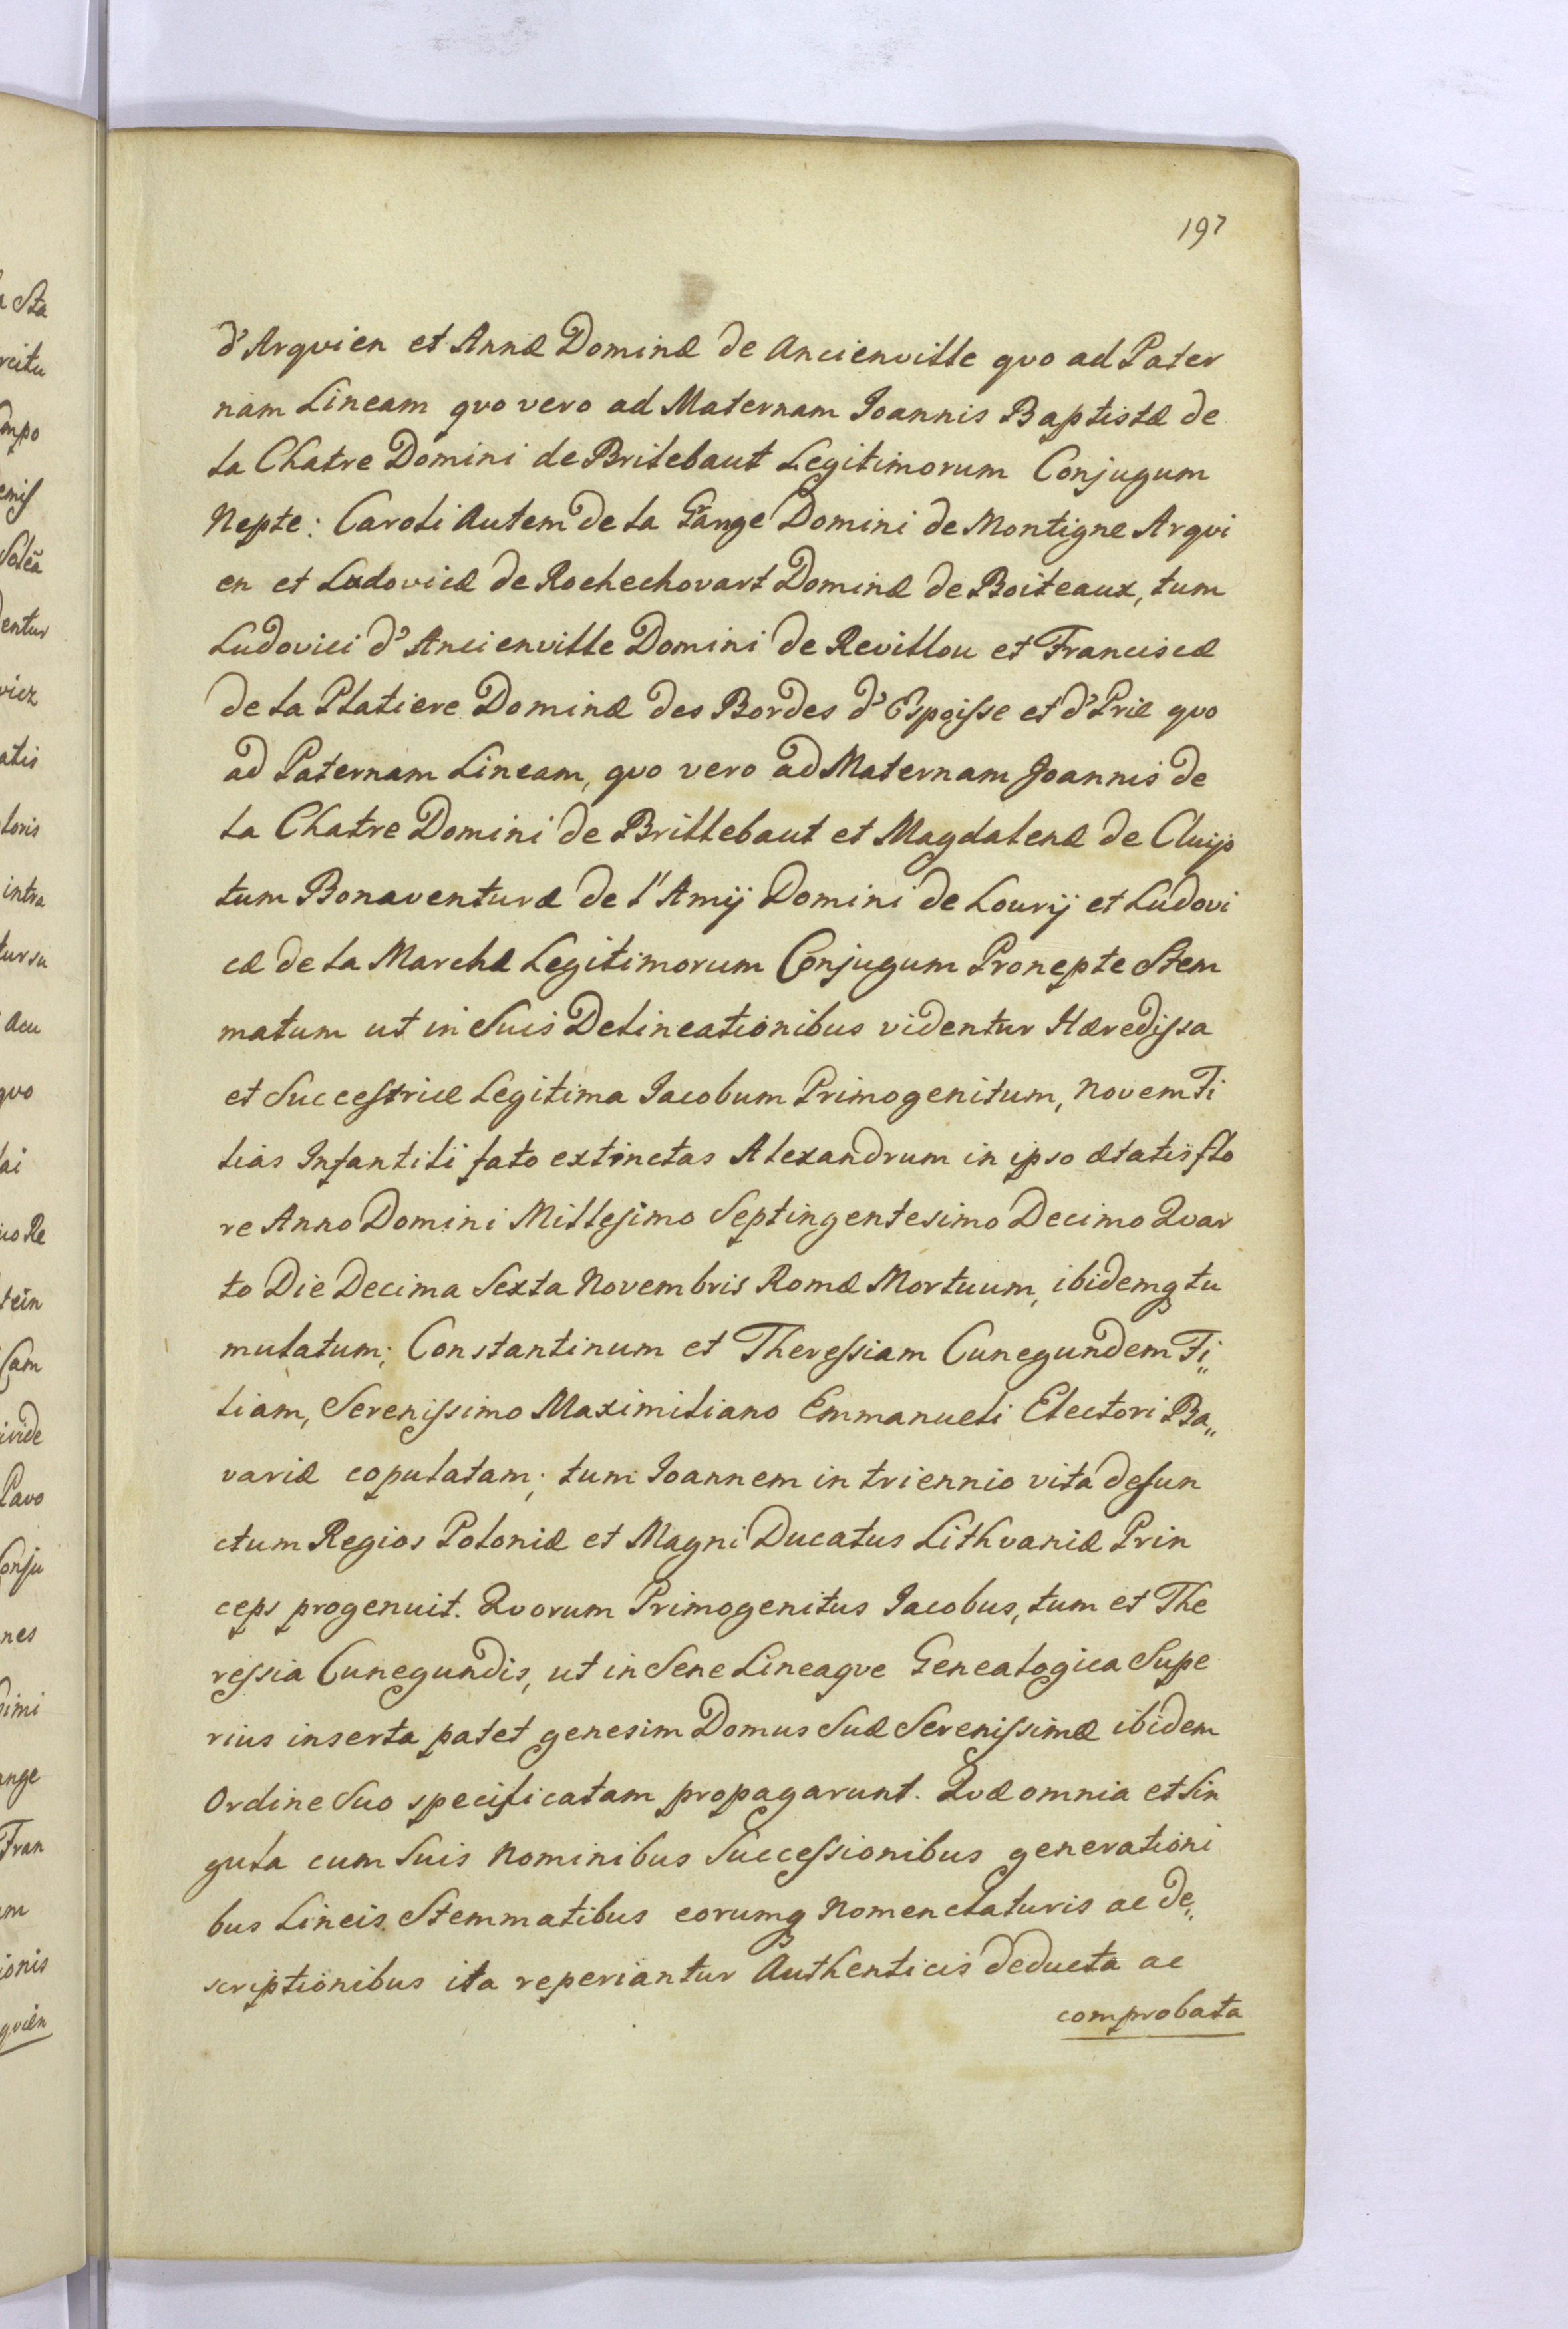 197
d'Arqvien et Annæ Dominæ de Ancienville qvo ad Pater
nam Lineam qvo vero ad Maternam Joannis Baptistæ de
la Chatre Domini de Britebaut Legitimorum Conjugum
Nepte: Caroli Autem de la Gange Domini de Montigne Arqvi
en et Ludovicæ de Rochechovart Dominæ de Boiteaux, tum
Ludovici d'Ancienville Domini de Revillou et Franciscæ
de la Platiere Dominæ des Bordes d'Espoisse et d'Prie qvo
ad Paternam Lineam, qvo vero ad Maternam Joannis de
la Chatre Domini de Brillebaut et Magdalenæ de Cluijs
tum Bonaventuræ de l'Amij Domini de Lourij et Ludovi
cæ de la Marchæ Legitimorum Conjugum Pronepte Stem
matum ut in Suis Delineationibus videntur Hæredissa
et Successtrice Legitima Jacobum Primogenitum, Novem Fi
lias Infantili fato extinctas Alexandrum in ipso ætatis flo
re Anno Domini Millesimo Septingentesimo Decimo Qvar
to Die Decima Sexta Novembris Romæ Mortuum, ibidemq tu
mulatum; Constantinum et Theressiam Cunegundem Fi„
liam, Serenissimo Maximiliano Emmanueli Electori Ba„
variæ copulatam; tum Joannem in triennio vita defun
ctum Regios Poloniæ et Magni Ducatus Lithvaniæ Prin
ceps progenuit. Qvorum Primogenitus Jacobus, tum et The
ressia Cunegundis, ut in Sene Lineaqve Genealogica Supe
rius inserta patet genesim Domus Suæ Serenissimæ ibidem
Ordine Suo specificatam propagarunt. Qvæ omnia et Sin
gula cum Suis Nominibus Successionibus generationi
bus Lineis Stemmatibus eorumq Nomenclaturis ac de„
scriptionibus ita reperiantur Authenticis deducta ac
comprobata